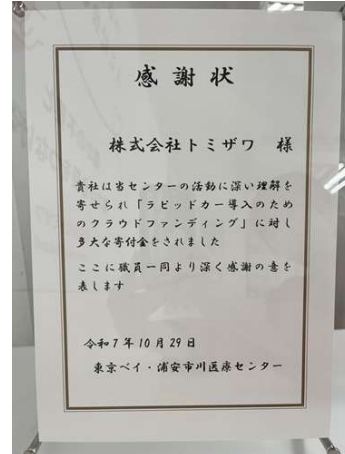 感謝状
株式会社トミザワ 様
貴社は当センターの活動に深い理解を
寄せられ「ラピッドカー導入のため
のクラウドファンディング」に対し
多大な寄付金をされました
ここに職員一同より深く感謝の意を
表します
令和7年10月29日
東京ベイ・浦安市川医療センター